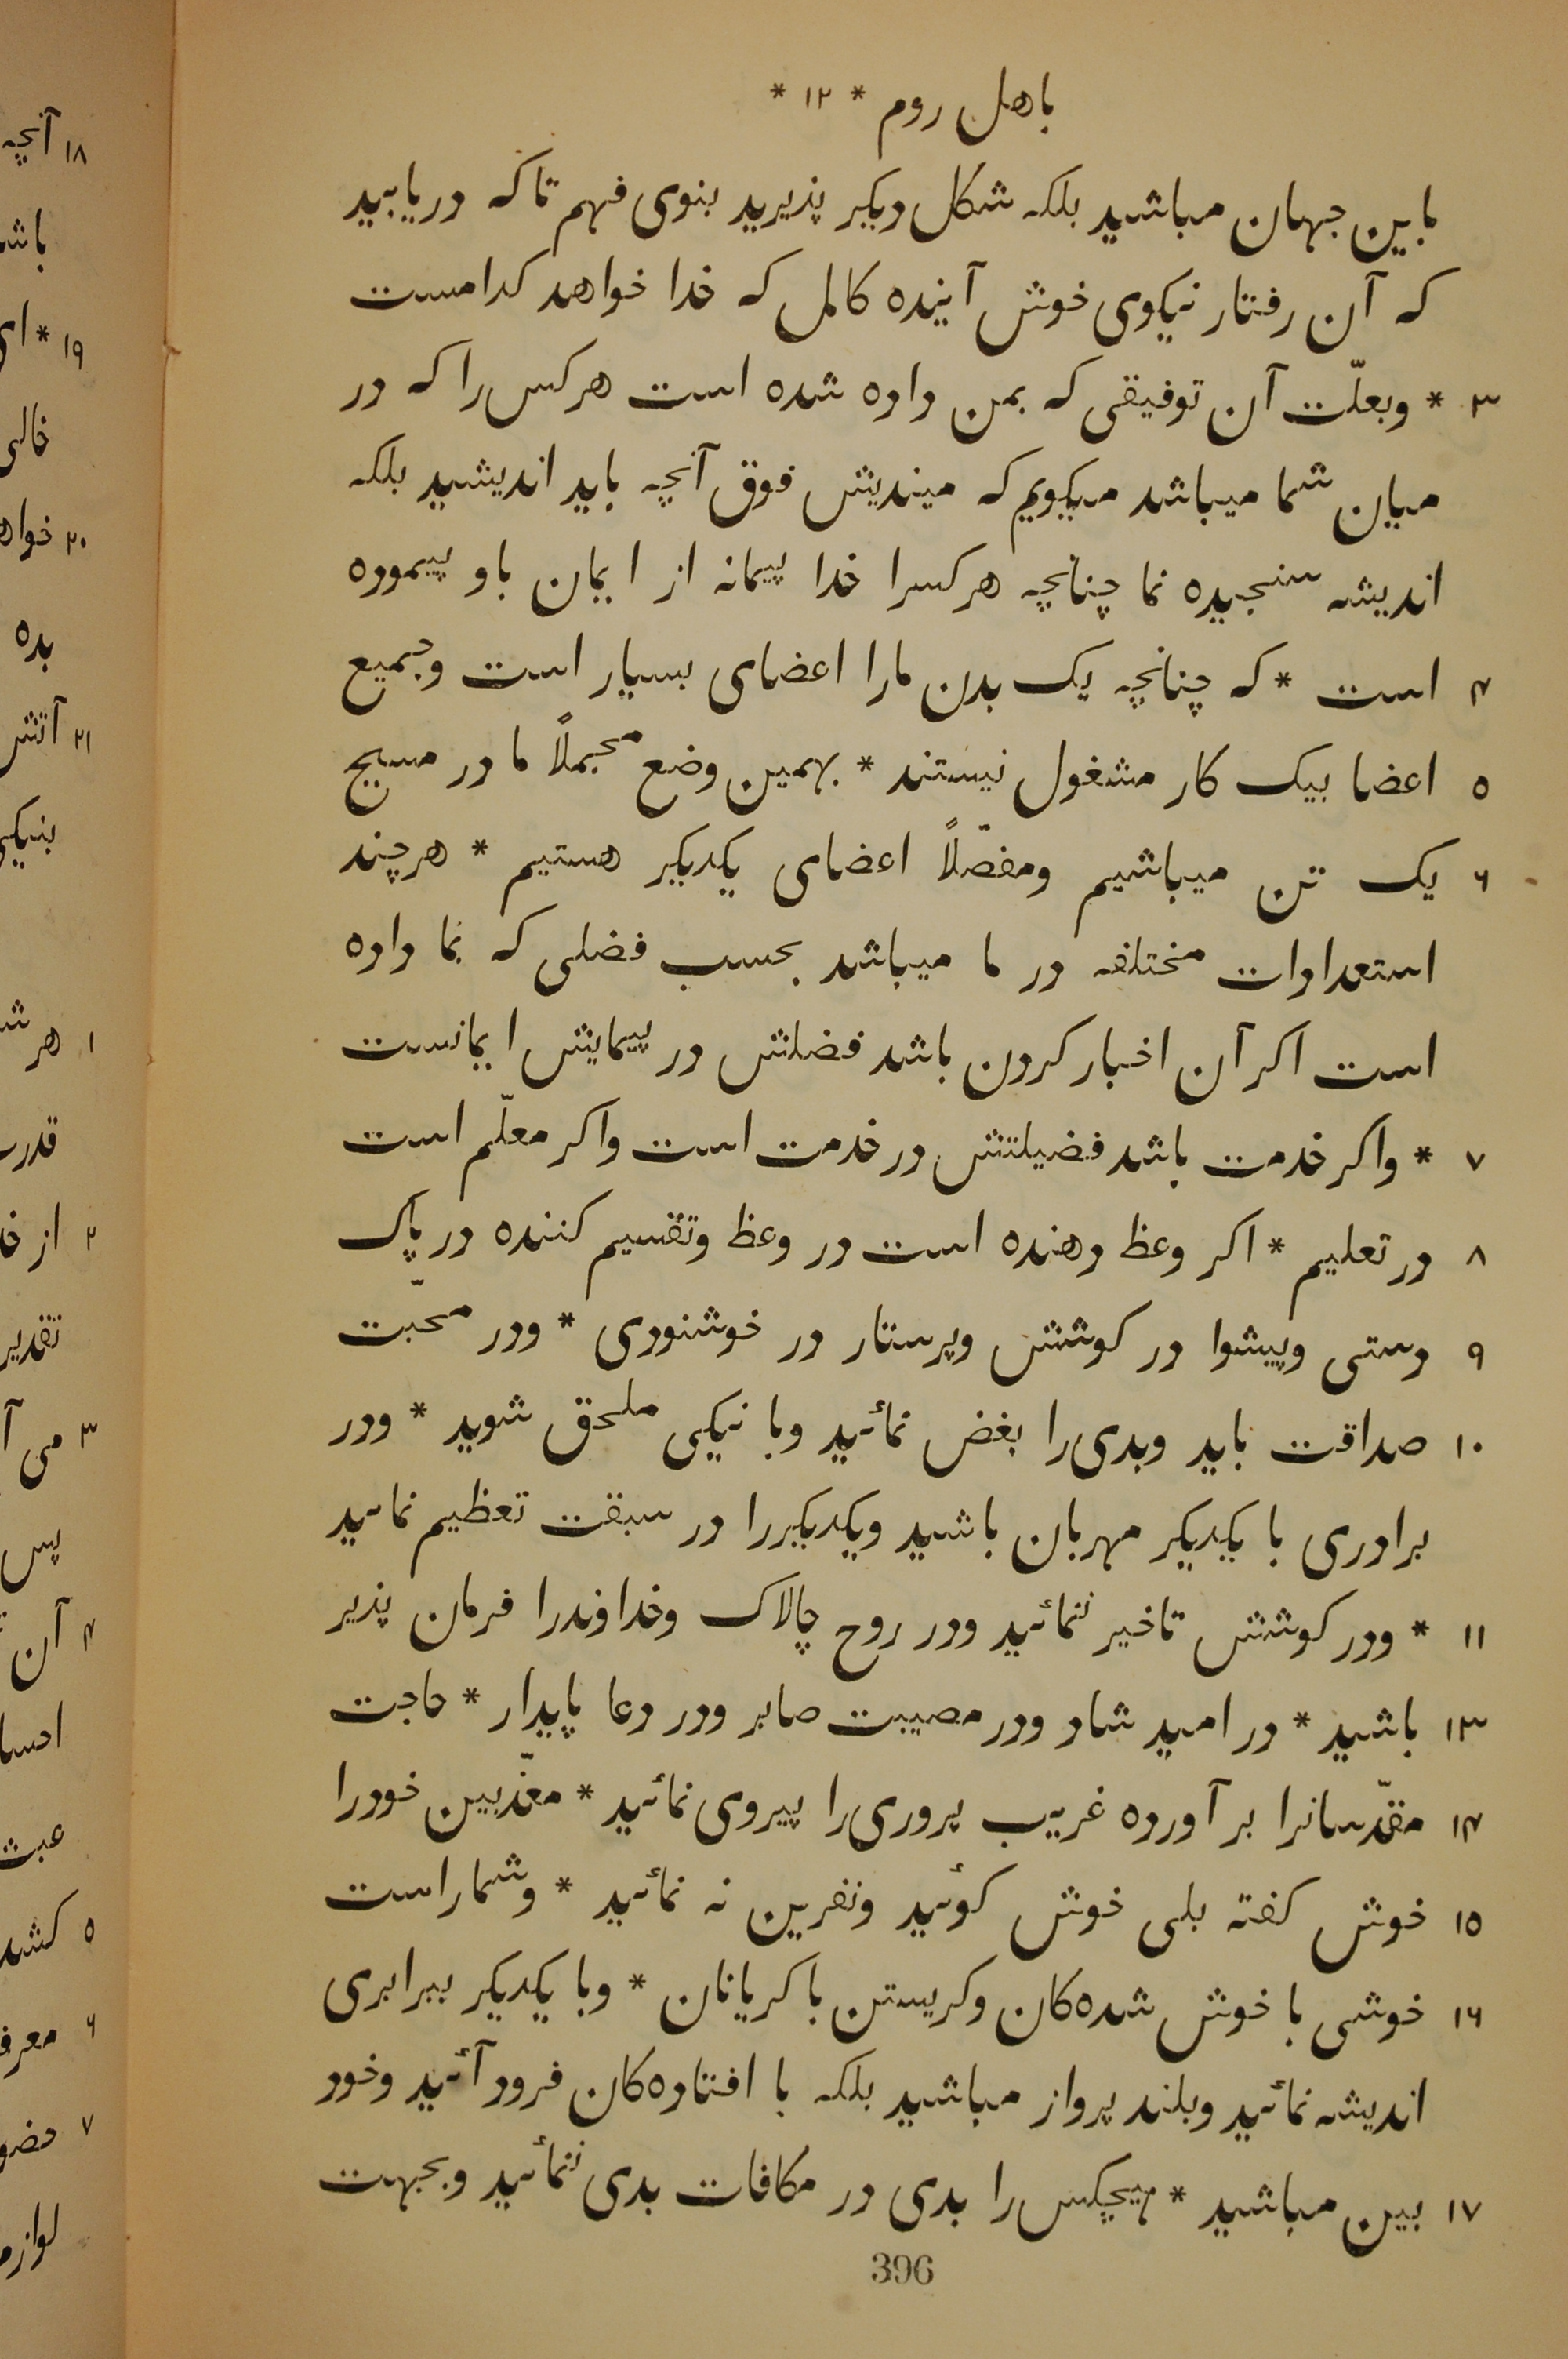 باهل روم * ۱۲ *
باین جهان مباشید بلکه شکل دیکر پذیرید بنوی فهم تا که دریابید
که آن رفتار نیکوی خوش آینده کامل که خدا خواهد کدامست
۳ * وبعلّت آن توفیقی که بمن داده شده است هرکس را که در
میان شما میباشد میکویم که میندیش فوق آنچه باید اندیشید بلکه
اندیشه سنجیده نما چنانچه هرکسرا خدا پیمانه از ایمان باو پیموده
۴ است * که چنانچه یک بدن مارا اعضای بسیار است وجمیع
۵ اعضا بیک کار مشغول نیستند * بهمین وضع مجملاً ما در مسیح
۶ یک تن میباشیم ومفصّلاً اعضای یکدیکر هستیم * هرچند
استعدادات مختلفه در ما میباشد بحسب فضلی که بما داده
است اکر آن اخبار کردن باشد فضلش در پیمایش ایمانست
۷ * واکر خدمت باشد فضیلتش در خدمت است واکر معلّم است
۸ در تعلیم * اکر وعظ دهنده است در وعظ وتقسیم کننده در پاک
۹ دستی وپیشوا در کوشش وپرستار در خوشنودی * ودر محبّت
۱۰ صداقت باید وبدی را بغض نمائید وبا نیکی ملحق شوید * ودر
برادری با یکدیکر مهربان باشید ویکدیکررا در سبقت تعظیم نمائید
۱۱ * ودر کوشش تاخیر ننمائید ودر روح چالاک وخداوندرا فرمان پذیر
۱۳ باشید * در امید شاد ودر مصیبت صابر ودر دعا پایدار * حاجت
۱۴ مقدّسانرا بر آورده غریب پروری را پیروی نمائید * معذّبین خودرا
۱۵ خوش کفته بلی خوش کوئید ونفرین نه نمائید * وشماراست
۱۶ خوشی با خوش شده کان وکریستن با کریانان * وبا یکدیکر ببرابری
اندیشه نمائید وبلند پرواز مباشید بلکه با افتاده کان فرود آئید وخود
۱۷ بین مباشید * هیچکس را بدی در مکافات بدی ننمائید وبجهت
396
۱۸ آنچه
۱۹ *
خالی
۲۰
بده
۲۱ آتش
۱
۲ از
۳ می
پس
۴ آن
۵
۶
۷